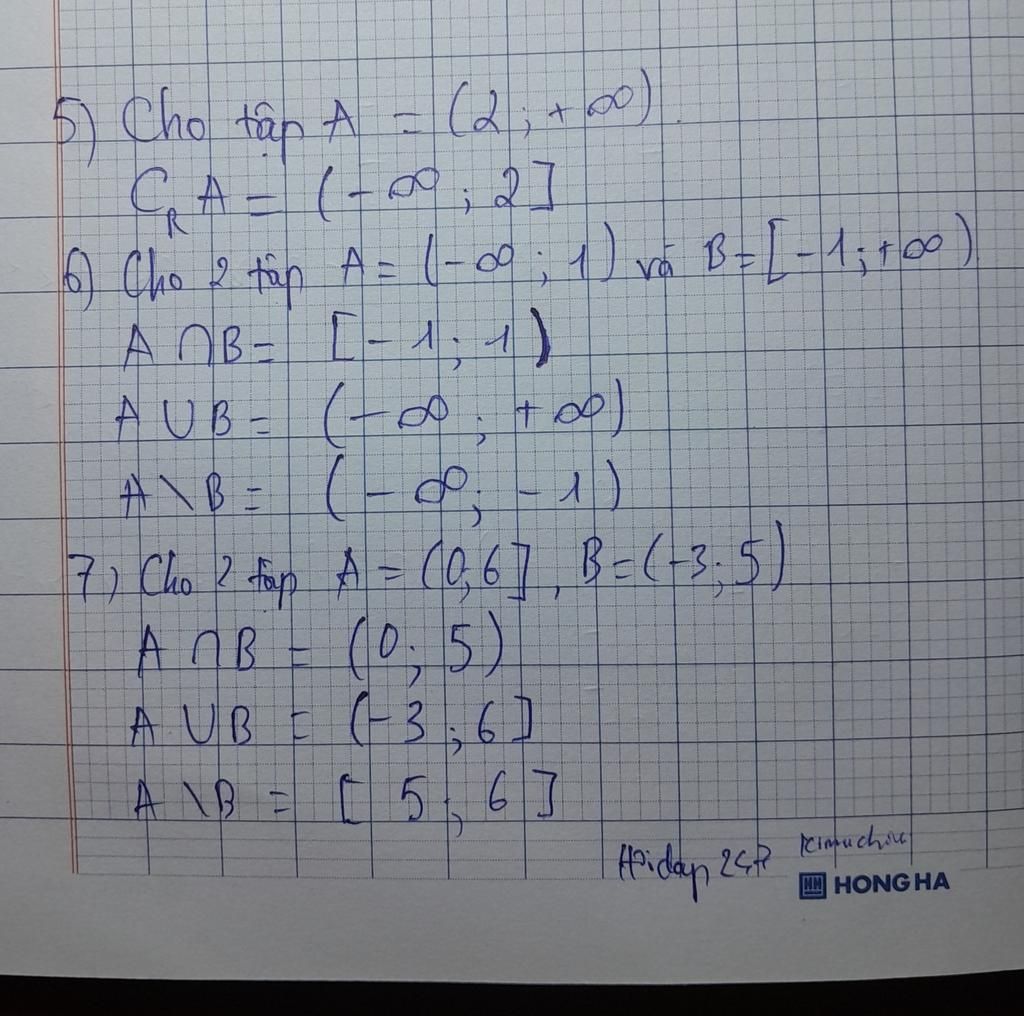 5) Cho tập A = (2; +∞).
C_R A = (-∞; 2]
6) Cho 2 tập A = (-∞; 1) và B = [-1; +∞)
A ∩ B = [-1; 1)
A ∪ B = (-∞; +∞)
A \ B = (-∞; -1)
7) Cho 2 tập A = (0; 6], B = (-3; 5)
A ∩ B = (0; 5)
A ∪ B = (-3; 6]
A \ B = [5; 6]
Hỏi đáp 247
HONG HA